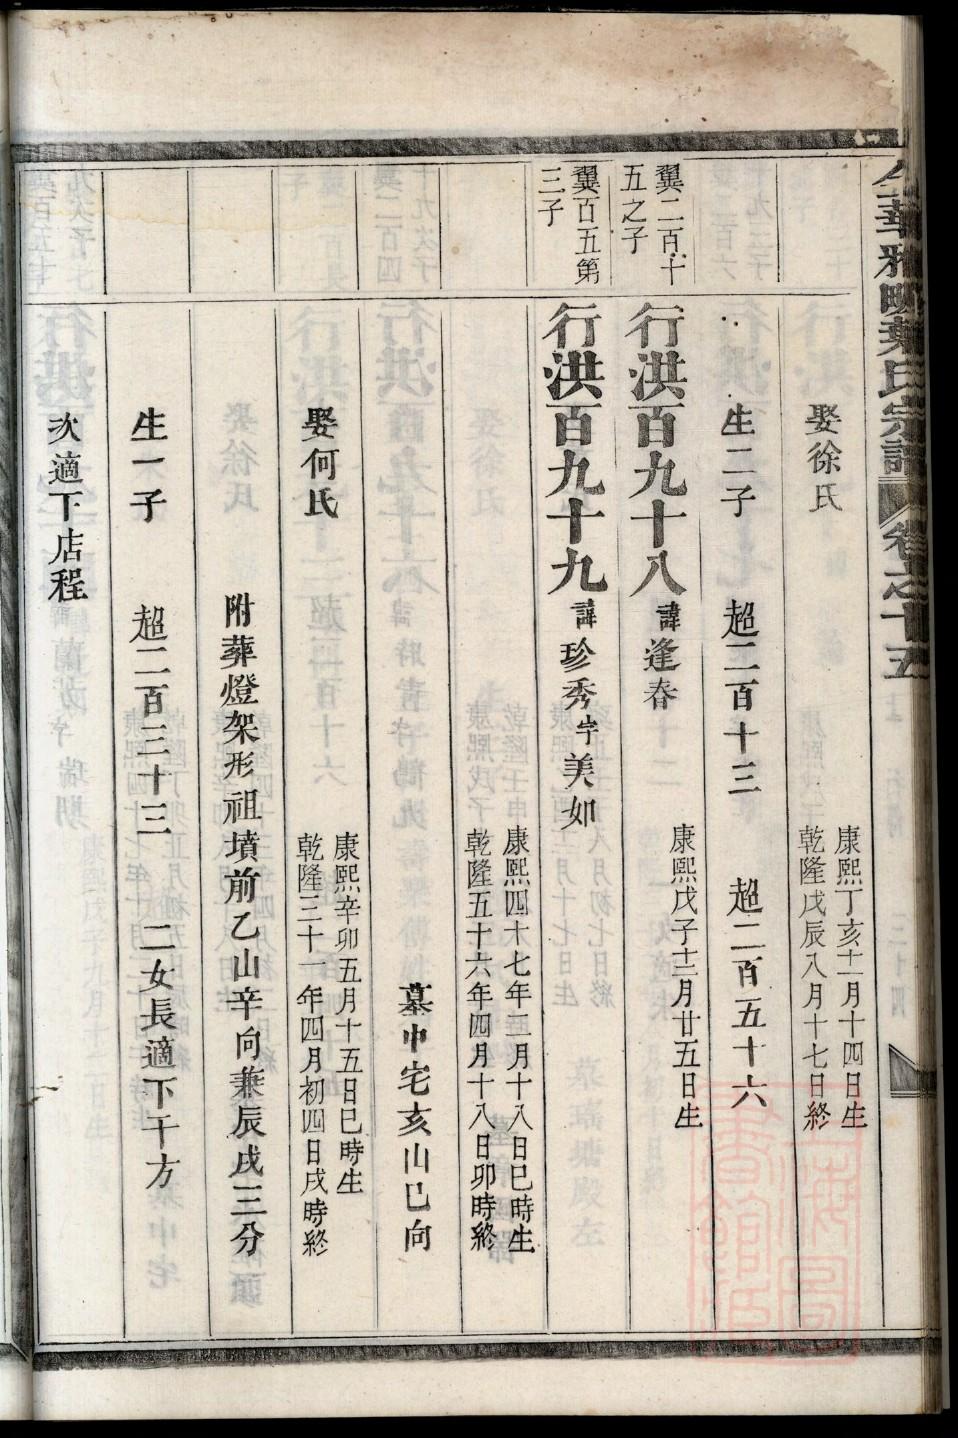 金華雅畈葉氏宗譜 卷之十五
娶徐氏 康熙丁亥十一月十四日生
乾隆戊辰八月十七日終
生二子 超二百十三 超二百五十六
翼二百十
五之子
行洪百九十八 諱逢春 康熙戊子十二月廿五日生
翼百五第
三子
行洪百九十九 諱珍秀字美如
康熙四十七年二月十八日巳時生
乾隆五十六年四月十八日卯時終
墓中宅亥山巳向
娶何氏 康熙辛卯五月十五日巳時生
乾隆三十一年四月初四日戌時終
附葬燈架形祖墳前乙山辛向兼辰戌三分
生一子 超二百三十三 二女長適下干方
次適下店程